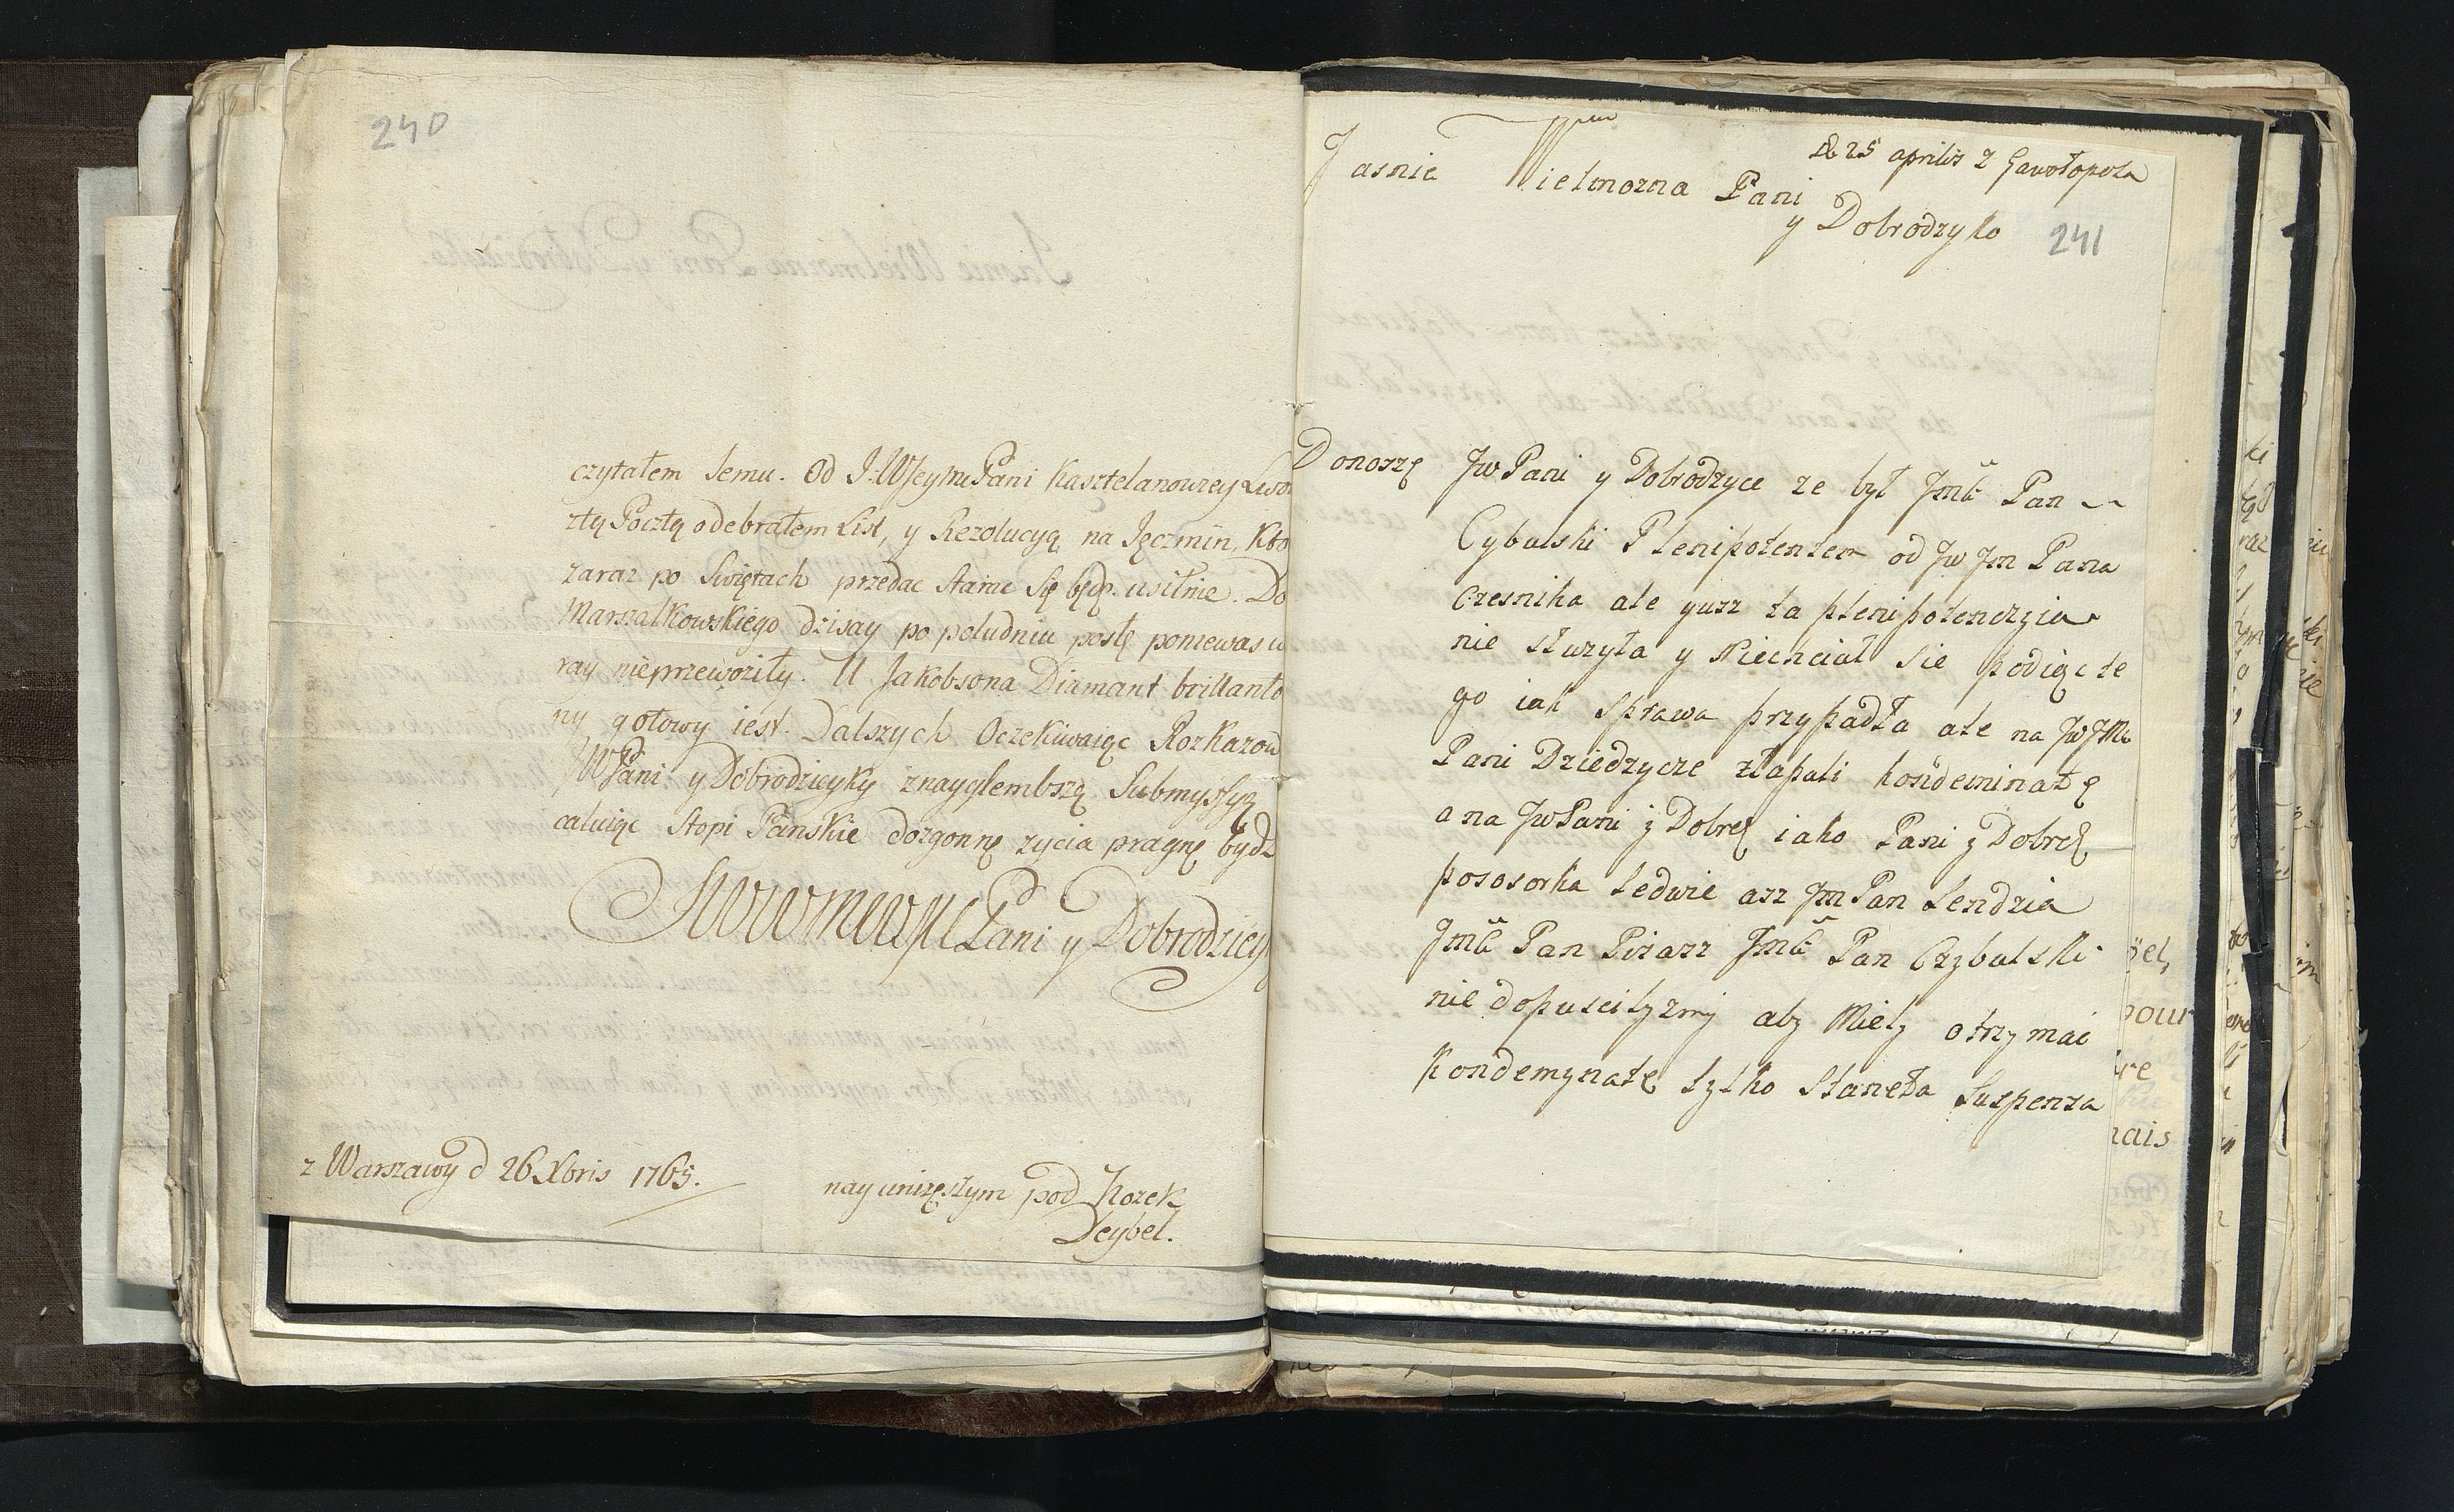 240
czytałem temu. Od J: W Jeymci Pani Kasztelanowzey Lwo
ztą Pocztą odebrałem List, y Rezolucyą na Jęczmin, Kto
zaraz po Swiętach przedac starac Się będę usilnie. Do
Marszalkowskiego dzisay po poludniu poslę poniewas w
ray nieprzewoziły. U Jakobsona Diamant brillanto
ny gotowy iest. Dalszych Oczekiwaiąc Rozkazow
JWPani y Dobrodzieyky znayglembszą Submyssyą
caluiąc stopi Panskie dozgonnę zycia pragnę bydz
Pani y Dobrodziey
z Warszawy d 26 Xbris 1765.
nayunizęszym pod Nozek
Deybel.
d 25 aprilis z
Jasnie Wielmozna Pani
y Dobrodzyko
241
Donoszę Jw Pani y Dobrodzyce ze był Jmć Pan
Cybulski Plenipotentem od Jw Jm Pana
Czesnika ale yusz ta plenipotenczyia
nie słuzyła y Niechciał sie podiąc te
go iak sprawa przypadła ale na Jw JMc
Pani Dziedzycze złapali kondeminatę
a na JwPani z Dobrej iako Pani z Dobrej
pososorka ledwie asz Jm Pan Sendzia
Jmć Pan Pisarz Jmć Pan Czybulski
nie dopuscilyzmy aby Miely otrzymac
Kondemynatę tylko Staneła Suspensa